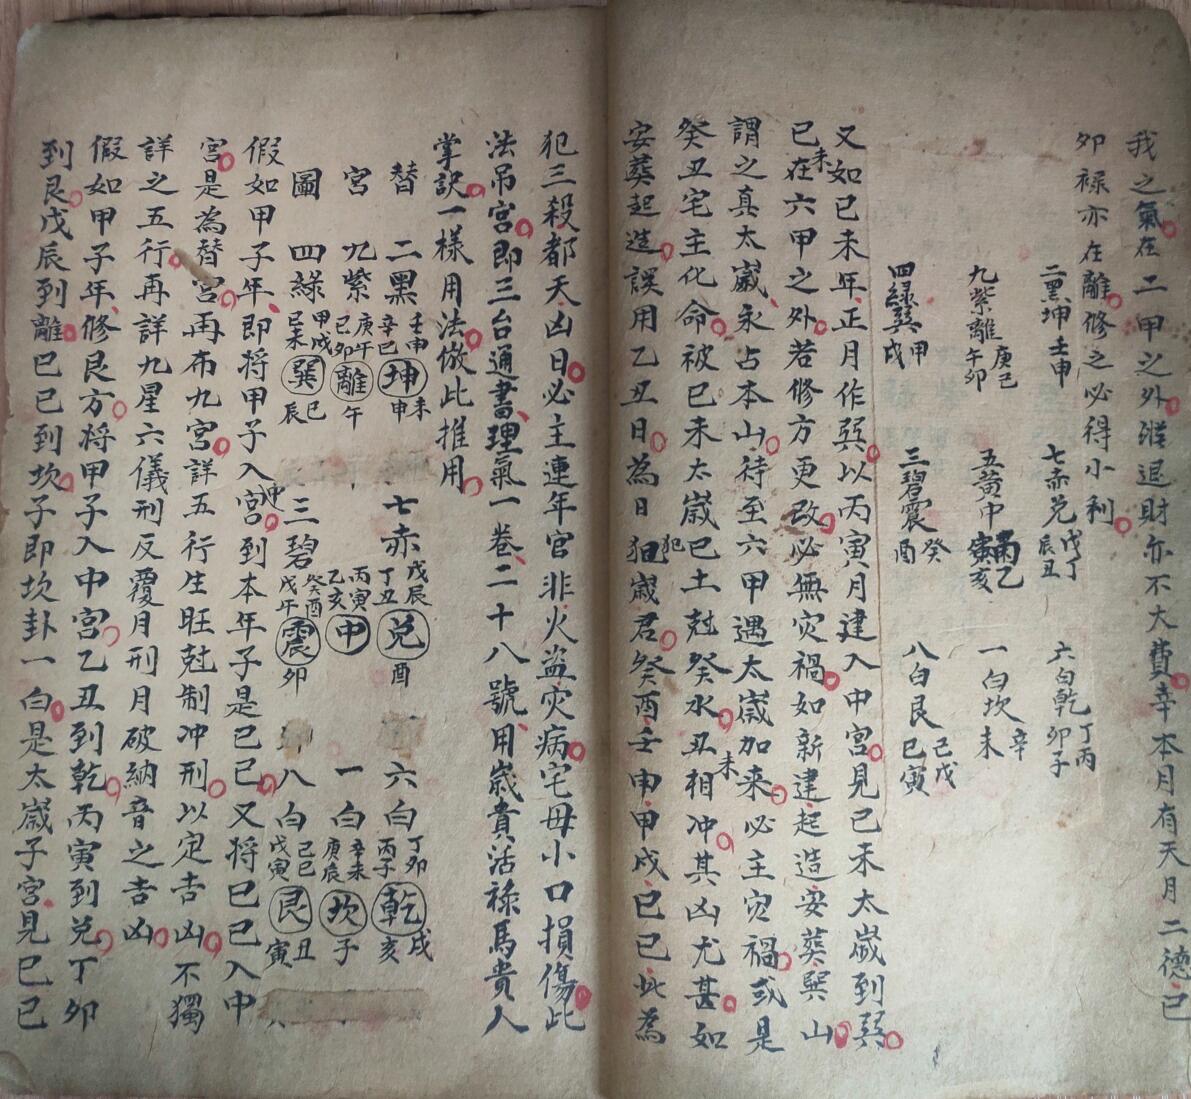 我之氣在二甲之外漼退財亦不大費幸本月有天月二德己
卯祿亦在離修之必得小利
二黑坤壬申 七赤兌戊丁辰丑 六白乾丁丙卯子
九紫離庚己午卯 五黃中丙乙寅亥 一白坎辛未
四綠巽甲戌 三碧震癸酉 八白艮己戊巳寅
又如己未年正月作巽以丙寅月建入中宮見己未太歲到巽
己未在六甲之外若修方更改必無灾禍如新建起造安葬巽山
謂之真太歲永占本山待至六甲遇太歲加來必主灾禍或是
癸丑宅主化命被己未太歲己土尅癸水丑未相冲其凶尤甚如
安葬起造誤用乙丑日為日犯歲君癸酉壬申甲戌己巳此為
犯三殺都天凶日必主連年官非火盗灾病宅母小口損傷此
法吊宮即三台通書理氣一卷二十八號用歲貴活祿馬貴人
掌訣一樣用法倣此推用
替 二黑壬申辛巳坤未申 七赤戊辰丁丑兌酉 六白丁卯丙子乾戌亥
宮 九紫庚午己卯離午 丙寅乙亥中 一白辛未庚辰坎子
圖 四綠甲戌己未巽巳辰 三碧癸酉戊午震卯 八白己巳戊寅艮丑寅
假如甲子年即将甲子入中宮到本年子是己巳又将己巳入中
宮是為替宮再布九宮詳五行生旺尅制冲刑以定吉凶不獨
詳之五行再詳九星六儀刑反覆月刑月破納音之吉凶
假如甲子年修艮方将甲子入中宮乙丑到乾丙寅到兌丁卯
到艮戊辰到離己巳到坎子即坎卦一白是太歲子宮見己巳